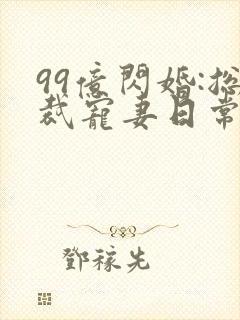 99億閃婚:総
裁寵妻日常
鄧稼先